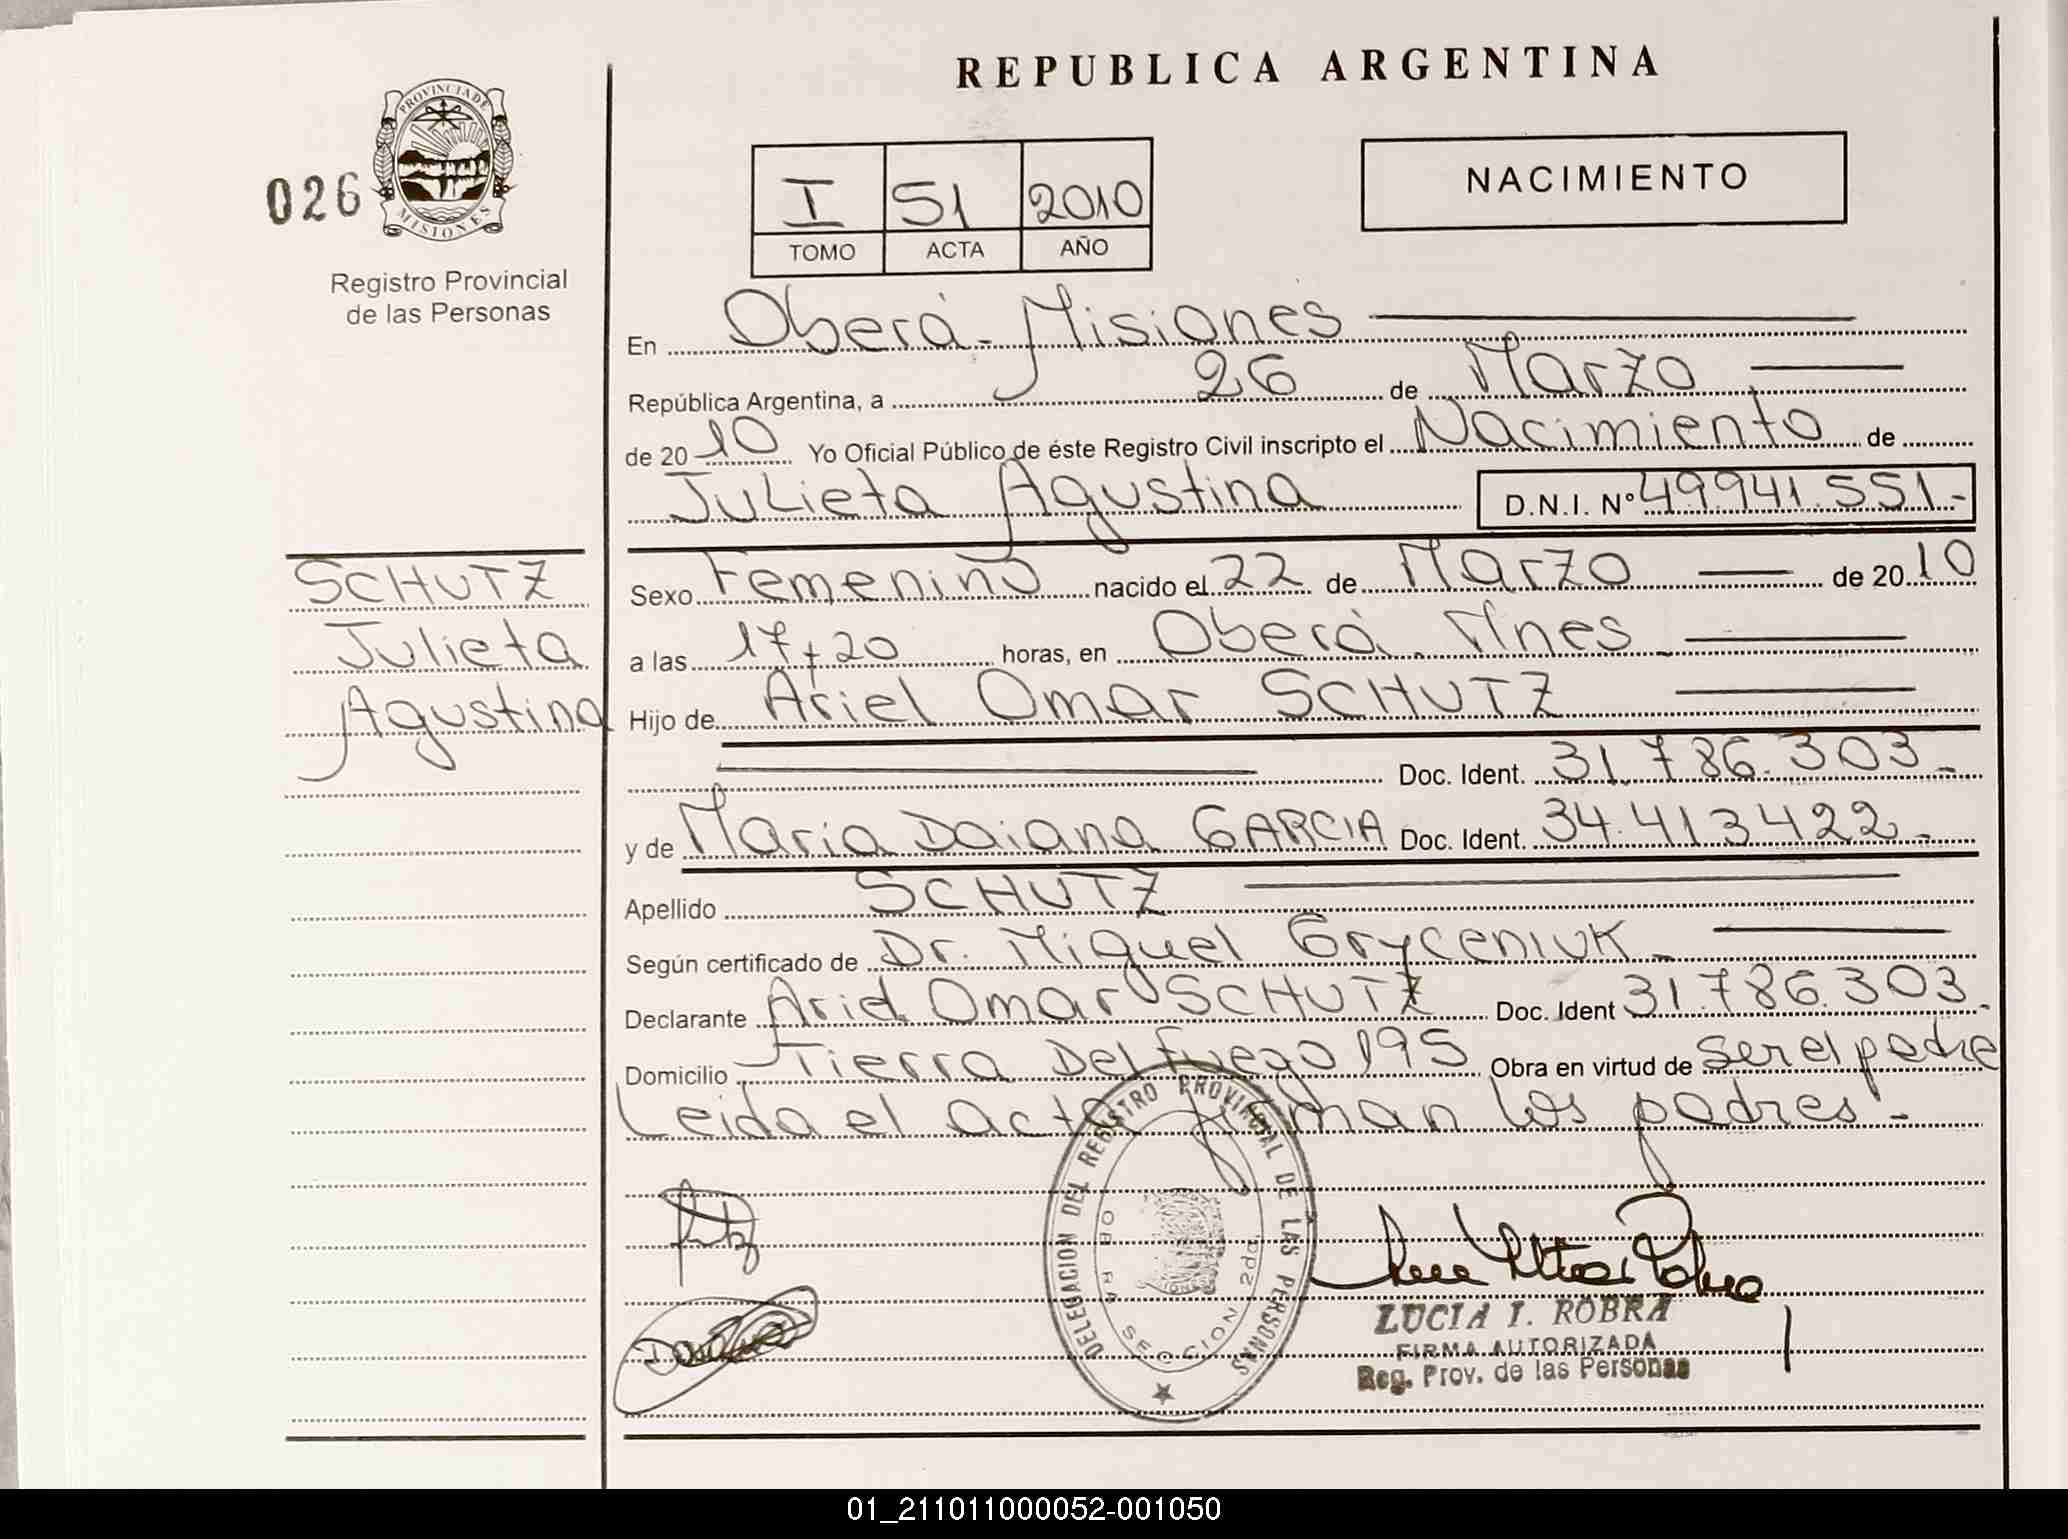 REPUBLICA ARGENTINA
PROVINCIA DE
MISIONES
026
Registro Provincial
de las Personas
I 51 2010
TOMO ACTA AÑO
NACIMIENTO
En Oberá - Misiones
República Argentina, a 26 de Marzo
de 2010 Yo Oficial Público de éste Registro Civil inscripto el Nacimiento de
Julieta Agustina D.N.I. Nº 49.941.551.-
SCHUTZ
Julieta
Agustina
Sexo Femenino nacido el 22 de Marzo de 2010
a las 17,20 horas, en Oberá. Mnes
Hijo de Ariel Omar SCHUTZ
Doc. Ident. 31.786.303.-
y de Maria Daiana GARCIA Doc. Ident. 34.413422.-
Apellido SCHUTZ
Según certificado de Dr. Miguel Gryceniuk.
Declarante Ariel Omar SCHUTZ Doc. Ident 31.786.303.-
Domicilio Tierra Del Fuego 195 Obra en virtud de ser el padre
Leida el acta firman los padres.-
DELEGACION DEL REGISTRO PROVINCIAL DE LAS PERSONAS
SECCION 2da.
LUCIA I. ROBRA
FIRMA AUTORIZADA
Reg. Prov. de las Personas
01_211011000052-001050